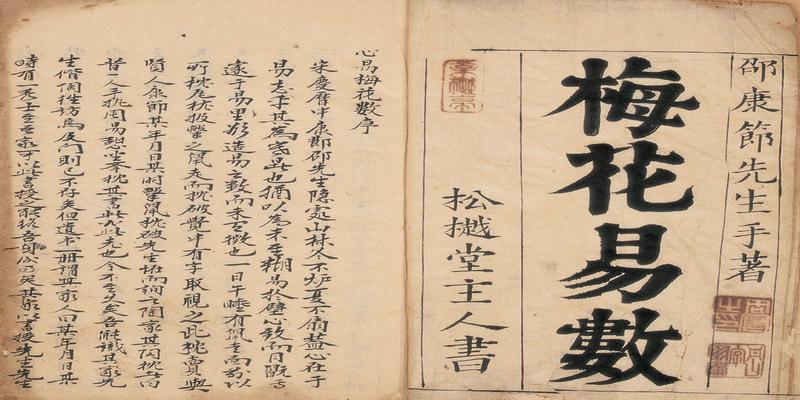 邵康節先生手著
梅花易數
松樾堂主人書
心易梅花數序
宋慶曆中康節邵先生隱處山林冬不炉夏不扇蓋心在于
易忘乎其為寒暑也猶以為未至糊易於壁心致而目翫焉
遂于易里欲造易之數而未有徴也一日午睡有鼠走而前以
所枕瓦枕投擊之鼠走而枕破覺中有字取視之此枕賣與
賢人康節某年月日某時擊鼠枕破先生怪而詢之陶家其陶枕者曰
昔一人手執周易憩坐舉枕其書此必此老也今不至久矣吾能識其家先
生偕陶往訪焉及門則已不存矣但遺书一册謂其家人曰某年月日某
時有一秀士至吾家可以此書授之能終吾身後事矣其家以書授先生先生